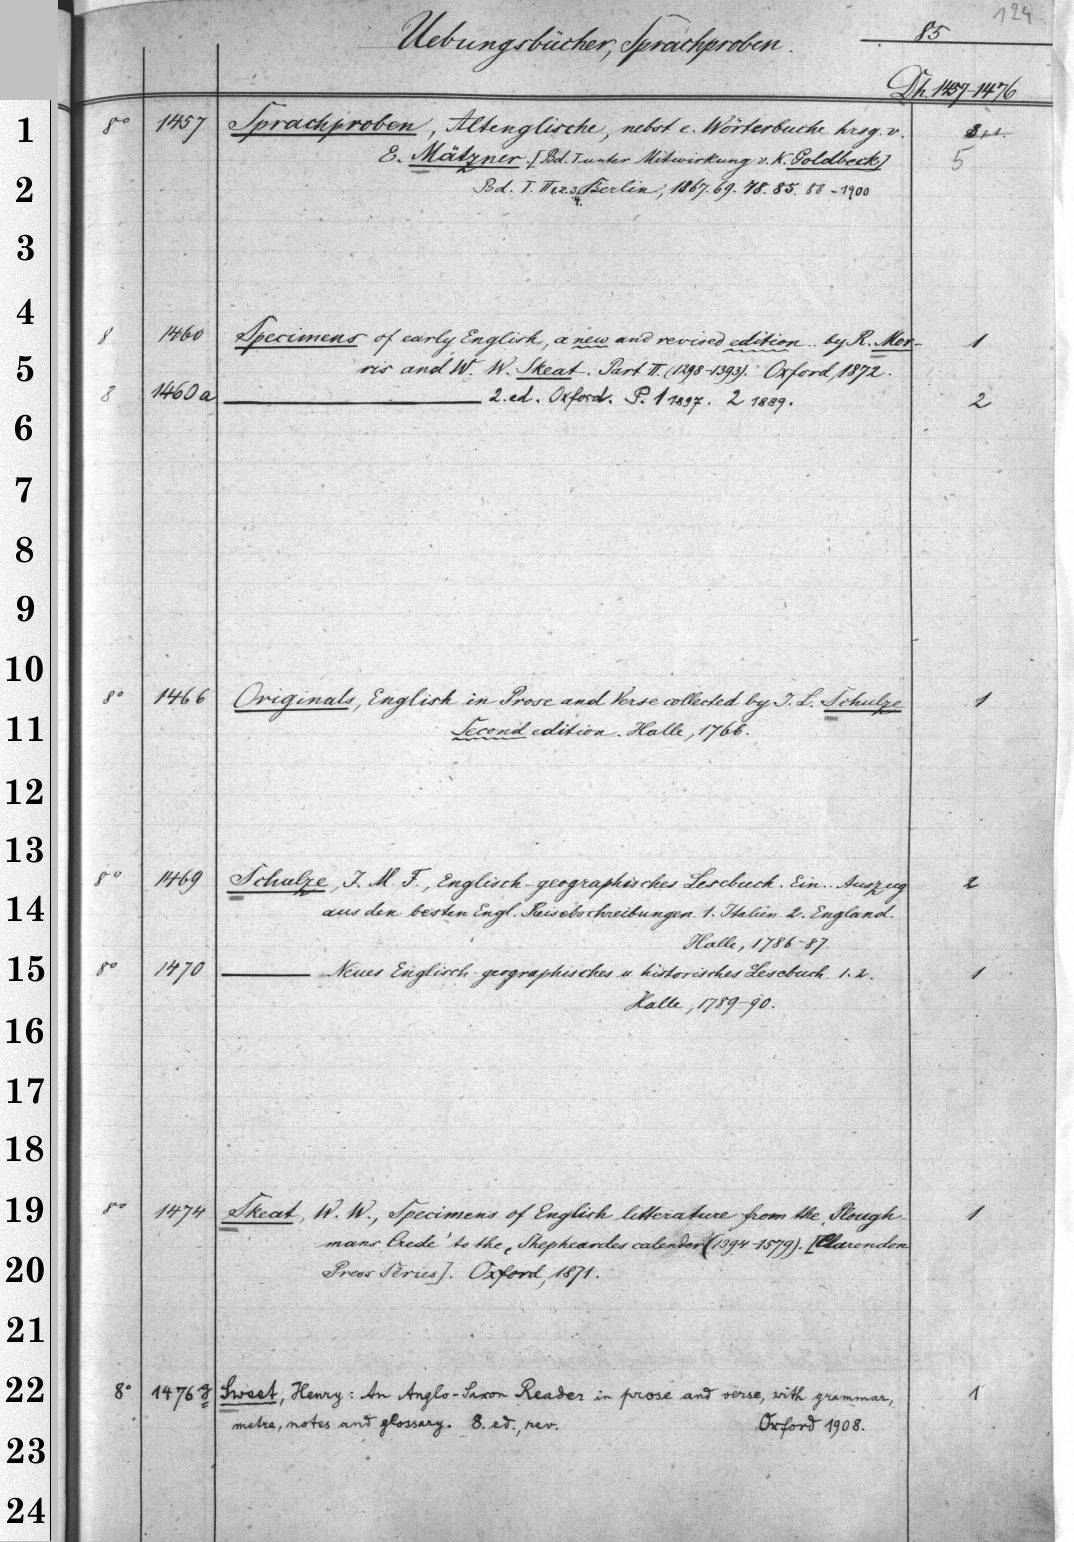 124
Uebungsbücher, Sprachproben. 85
Dh. 1457-1476
1 8° 1457 Sprachproben, Altenglische, nebst e. Wörterbuche hrsg. v.
E. Mätzner. [Bd. I unter Mitwirkung v. K. Goldbeck] 5
2 Bd. I. II 1.2.3. 4. Berlin, 1867. 69. 78. 85. 88-1900
3
4
8 1460 Specimens of early English, a new and revised edition.. by R. Mor- 1
5 ris and W. W. Skeat. Part II. (1298-1393). Oxford, 1872.
8 1460a 2. ed. Oxford. P. 1 1897. 2 1889. 2
6
7
8
9
10
8° 1466 Originals, English in Prose and Verse collected by J. L. Schulze 1
11 Second edition. Halle, 1766.
12
13
8° 1469 Schulze, J. M. F., Englisch-geographisches Lesebuch. Ein.. Auszug 2
14 aus den besten Engl. Reisebschreibungen. 1. Italien 2. England.
Halle, 1786-87.
15 8° 1470 Neues Englisch-geographisches u. historisches Lesebuch. 1. 2. 1
Halle, 1789-90.
16
17
18
19 8° 1474 Skeat, W. W., Specimens of English litterature from the 'Plough- 1
mans Crede' to the 'Shepheardes calender' (1394-1579). [Clarendon
20 Press Series]. Oxford, 1871.
21
22 8° 1476g Sweet, Henry: An Anglo-Saxon Reader in prose and verse, with grammar, 1
metre, notes and glossary. 8. ed., rev. Oxford 1908.
23
24